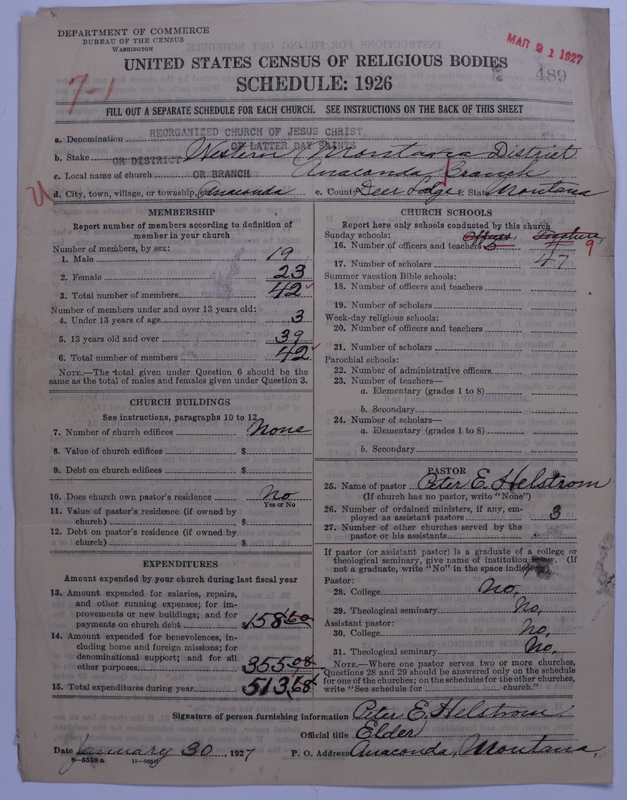 DEPARTMENT OF COMMERCE
BUREAU OF THE CENSUS
WASHINGTON
MAR 21 1927
UNITED STATES CENSUS OF RELIGIOUS BODIES
SCHEDULE: 1926
489
7-1
FILL OUT A SEPARATE SCHEDULE FOR EACH CHURCH. SEE INSTRUCTIONS ON THE BACK OF THIS SHEET
a. Denomination REORGANIZED CHURCH OF JESUS CHRIST
OF LATTER DAY SAINTS
b. Stake OR DISTRICT Western Montana District
c. Local name of church OR BRANCH Anaconda Branch
d. City, town, village, or township, etc. Anaconda e. County Deer Lodge f. State Montana
MEMBERSHIP
Report number of members according to definition of
member in your church
Number of members, by sex:
1. Male 19
2. Female 23
3. Total number of members 42
Number of members under and over 13 years old:
4. Under 13 years of age 3
5. 13 years old and over 39
6. Total number of members 42
NOTE.—The total given under Question 6 should be
same as the total of males and females given under Question 3.
CHURCH BUILDINGS
See instructions, paragraphs 10 to 12
7. Number of church edifices None
8. Value of church edifices $
9. Debt on church edifices $
10. Does church own pastor's residence No
Yes or No
11. Value of pastor's residence (if owned by
church) $
12. Debt on pastor's residence (if owned by
church) $
EXPENDITURES
Amount expended by your church during last fiscal year
13. Amount expended for salaries, repairs,
and other running expenses; for im-
provements or new buildings; and for
payments on church debt 158.60
14. Amount expended for benevolences, in-
cluding home and foreign missions; for
denominational support; and for all
other purposes 355.08
15. Total expenditures during year 513.68
CHURCH SCHOOLS
Report here only schools conducted by this church
Sunday schools: Officers, Teachers
16. Number of officers and teachers 9
17. Number of scholars 47
Summer vacation Bible schools:
18. Number of officers and teachers
19. Number of scholars
Week-day religious schools:
20. Number of officers and teachers
21. Number of scholars
Parochial schools:
22. Number of administrative officers
23. Number of teachers—
a. Elementary (grades 1 to 8)
b. Secondary
24. Number of scholars—
a. Elementary (grades 1 to 8)
b. Secondary
PASTOR
25. Name of pastor Peter E. Helstrom
(If church has no pastor, write "None")
26. Number of ordained ministers, if any, em-
ployed as assistant pastors 3
27. Number of other churches served by the
pastor or his assistants
If pastor (or assistant pastor) is a graduate of a college or
theological seminary, give name of institution below. (If
not a graduate, write "No" in the space indicated)
Pastor:
28. College No,
29. Theological seminary No,
Assistant pastor:
30. College No.
31. Theological seminary No.
NOTE.—Where one pastor serves two or more churches,
Questions 28 and 29 should be answered only on the schedule
for one of the churches; on the schedules for the other churches,
write "See schedule for church."
Signature of person furnishing information Peter E. Helstrom
Official title Elder
Date January 30, 1927 P. O. Address Anaconda, Montana,
8-5519a